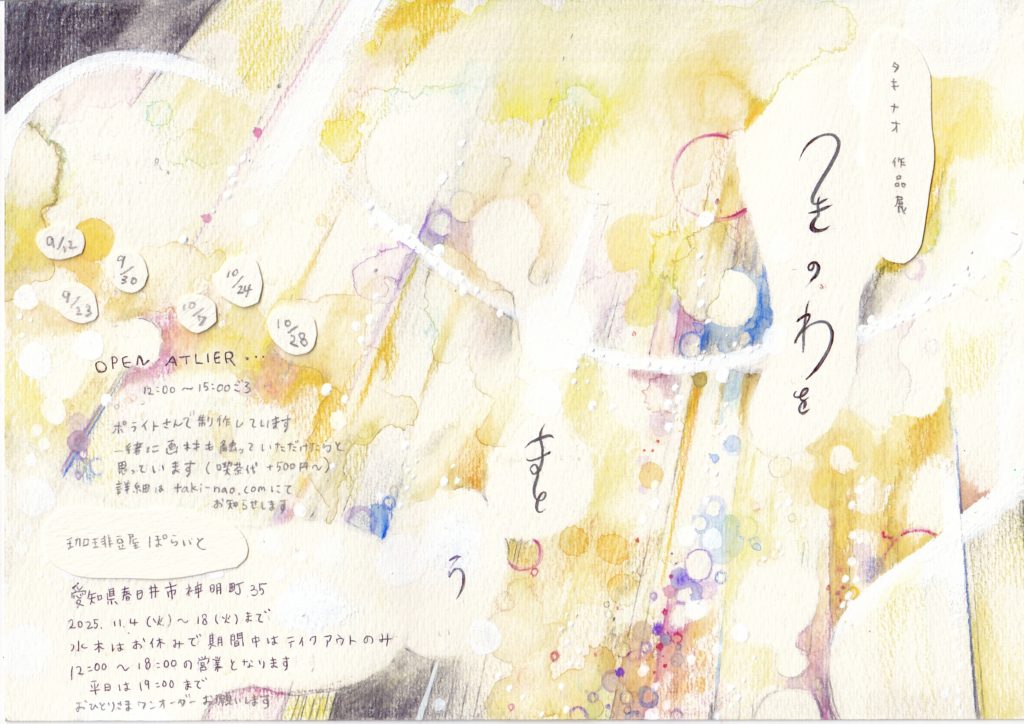 タキナオ 作品展
つきのわを
まとう
9/12
9/30
9/23
10/7
10/24
10/28
OPEN ATLIER…
12:00〜15:00ごろ
ポライトさんで制作しています
一緒に画材も触っていただけたらと
思っています(喫茶代+500円〜)
詳細は taki-nao.comにて
お知らせします
珈琲豆屋 ぽらいと
愛知県春日井市神明町35
2025. 11.4(火)〜18(火)まで
水木はお休みで期間中はテイクアウトのみ
12:00〜18:00の営業となります
平日は19:00まで
おひとりさまワンオーダーお願いします